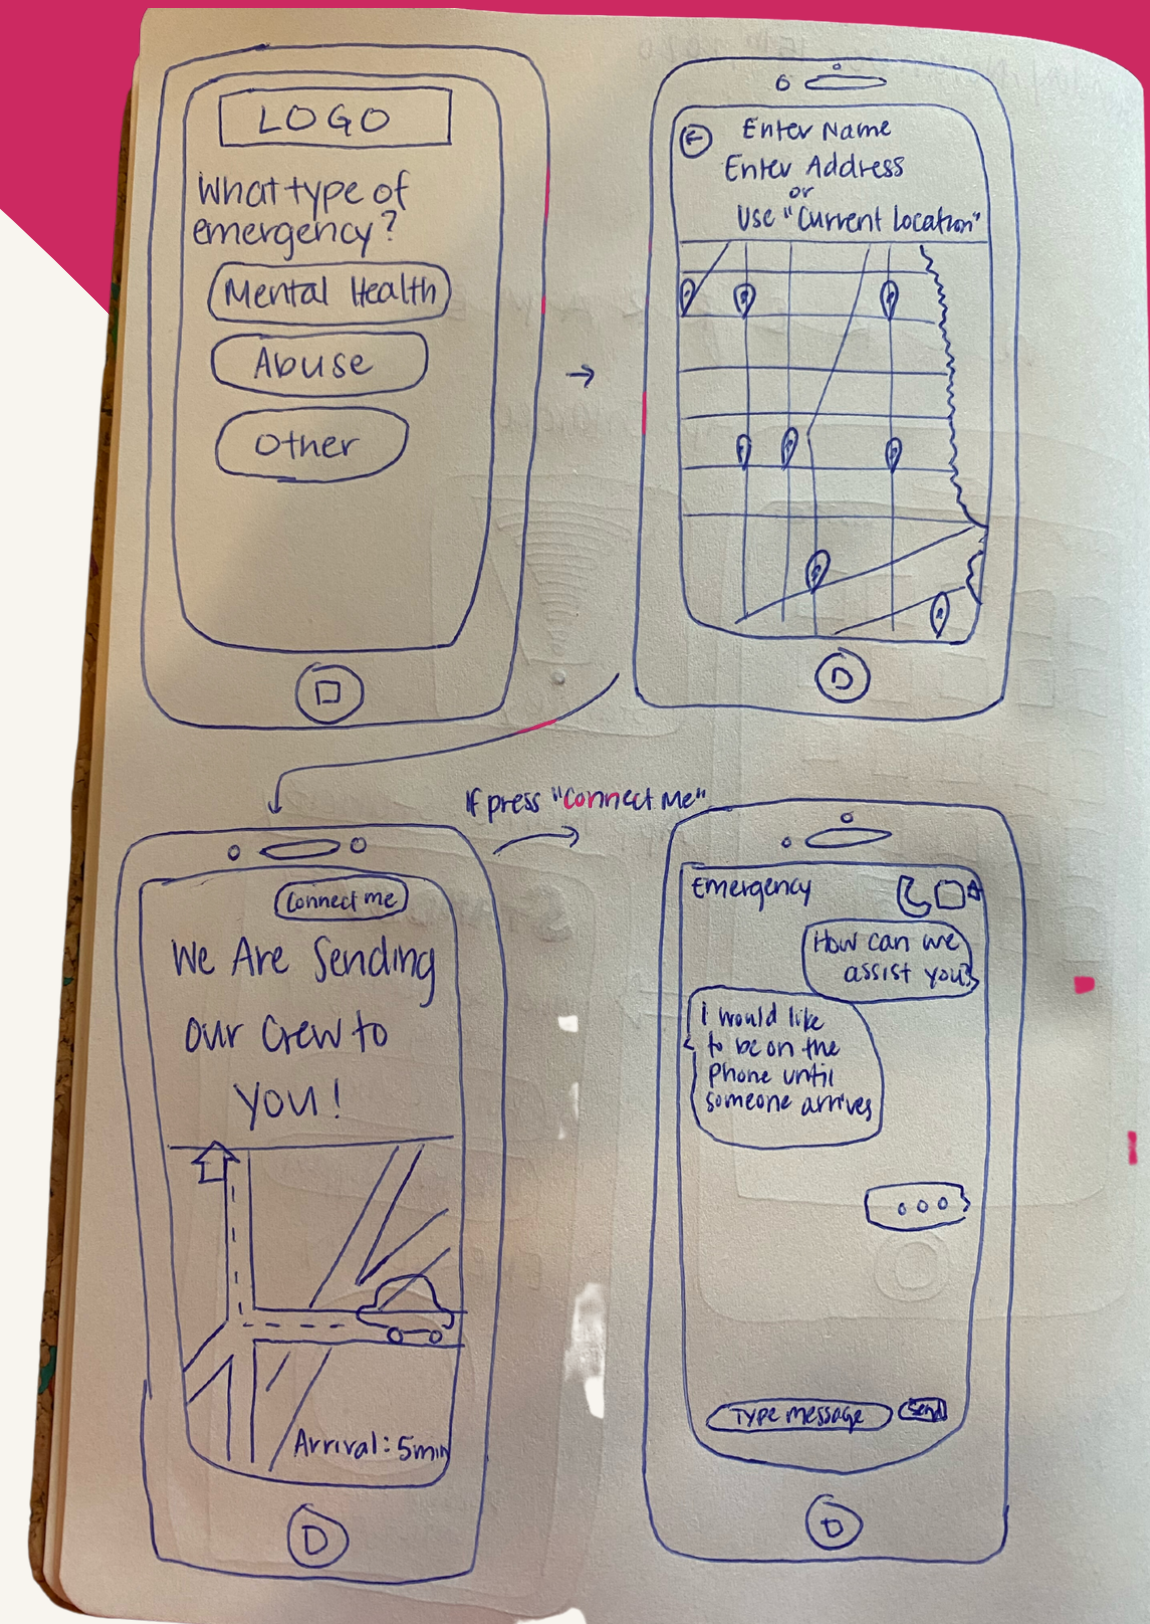 LOGO
What type of
emergency?
Mental Health
Abuse
Other
Enter Name
Enter Address
or
Use "Current Location"
If press "Connect Me"
Connect me
We Are Sending
our Crew to
you!
Arrival: 5min
Emergency
How can we
assist you?
I would like
to be on the
phone until
someone arrives
Type message
Send